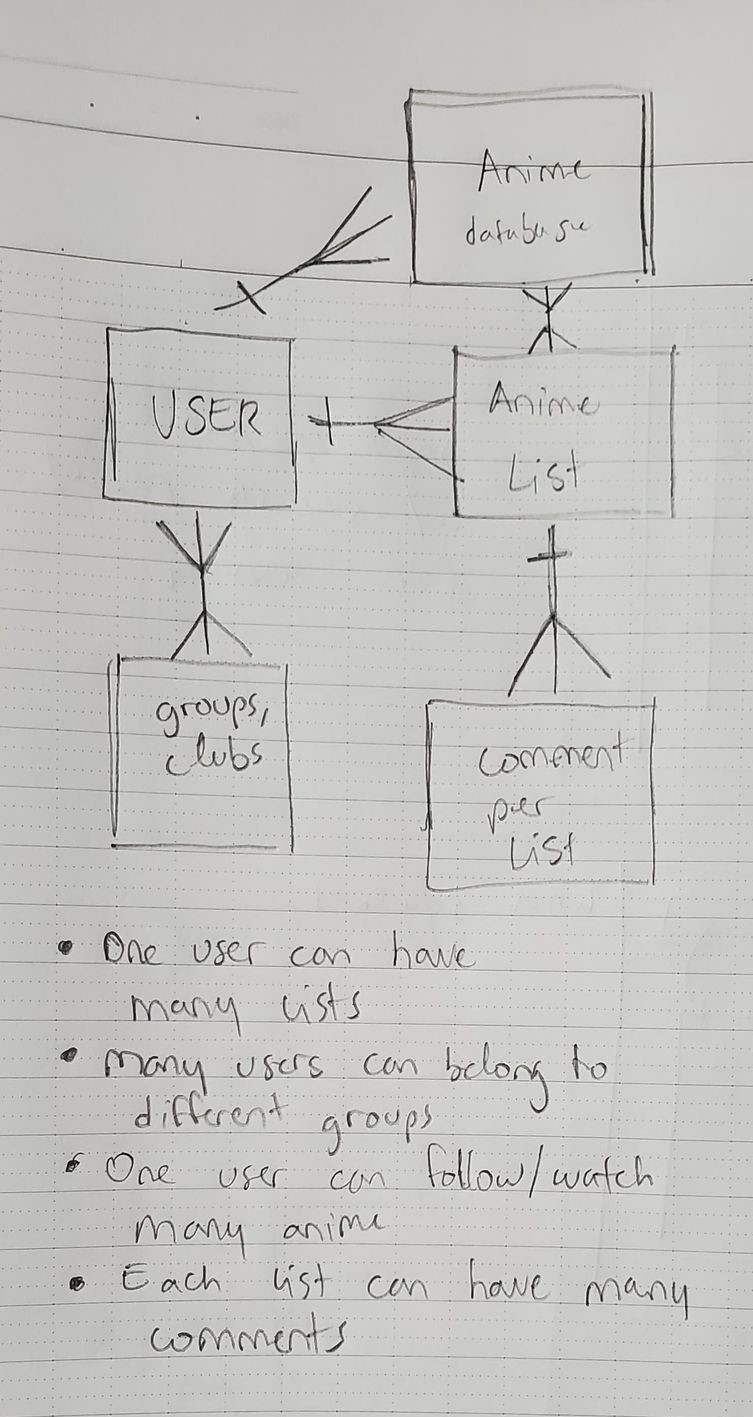 Anime
database
USER
Anime
List
groups,
clubs
comment
per
List
• One user can have
many lists
• Many users can belong to
different groups
• One user can follow/watch
many anime
• Each list can have many
comments